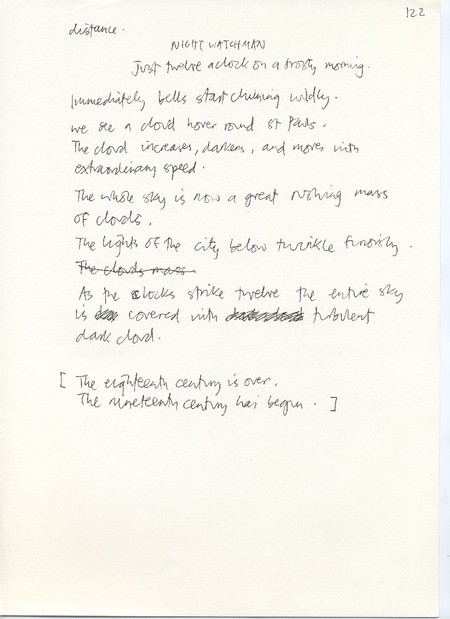 122
distance.
NIGHT WATCHMAN
Just twelve o clock on a frosty morning.
Immediately bells start chiming wildly.
we see a cloud hover round St Pauls.
The cloud increases, darkens, and moves with
extraordinary speed.
The whole sky is now a great rushing mass
of clouds.
The lights of the city below twinkle furiously.
The clouds mass
As the clocks strike twelve the entire sky
is covered with turbulent
dark cloud.
[ The eighteenth century is over.
The nineteenth century has begun. ]